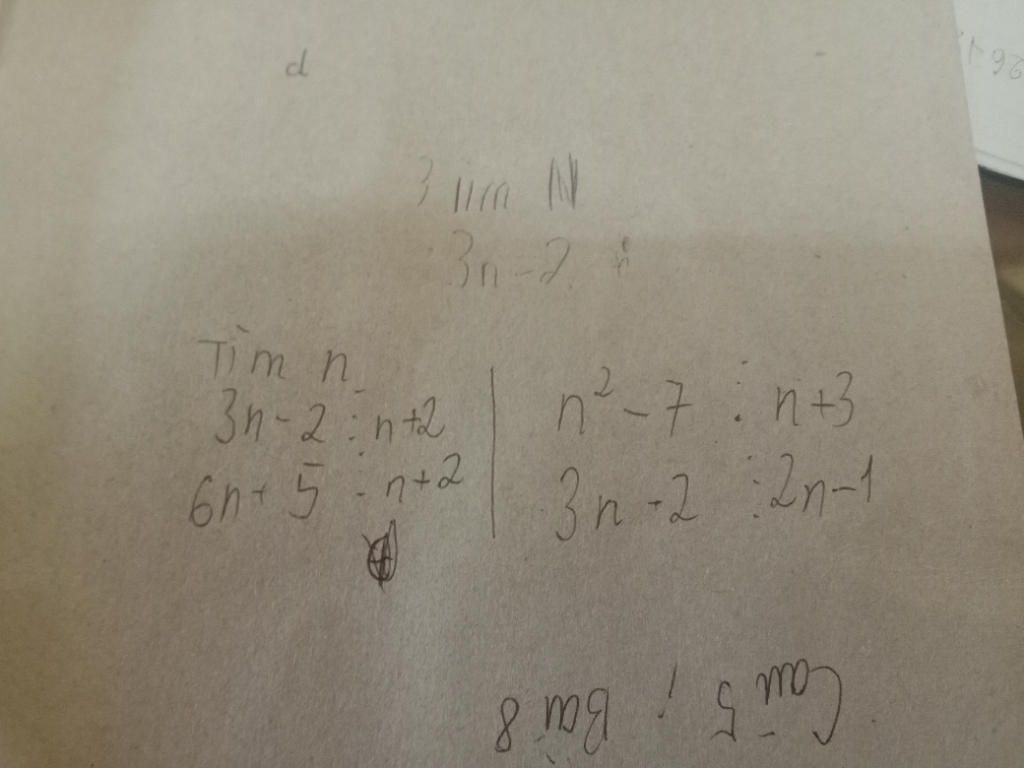 d
Tìm N
3n - 2 ⋮
Tìm n
3n - 2 ⋮ n+2
6n + 5 ⋮ n+2
n² - 7 ⋮ n+3
3n - 2 ⋮ 2n-1
Câu 5 ; Bài 8